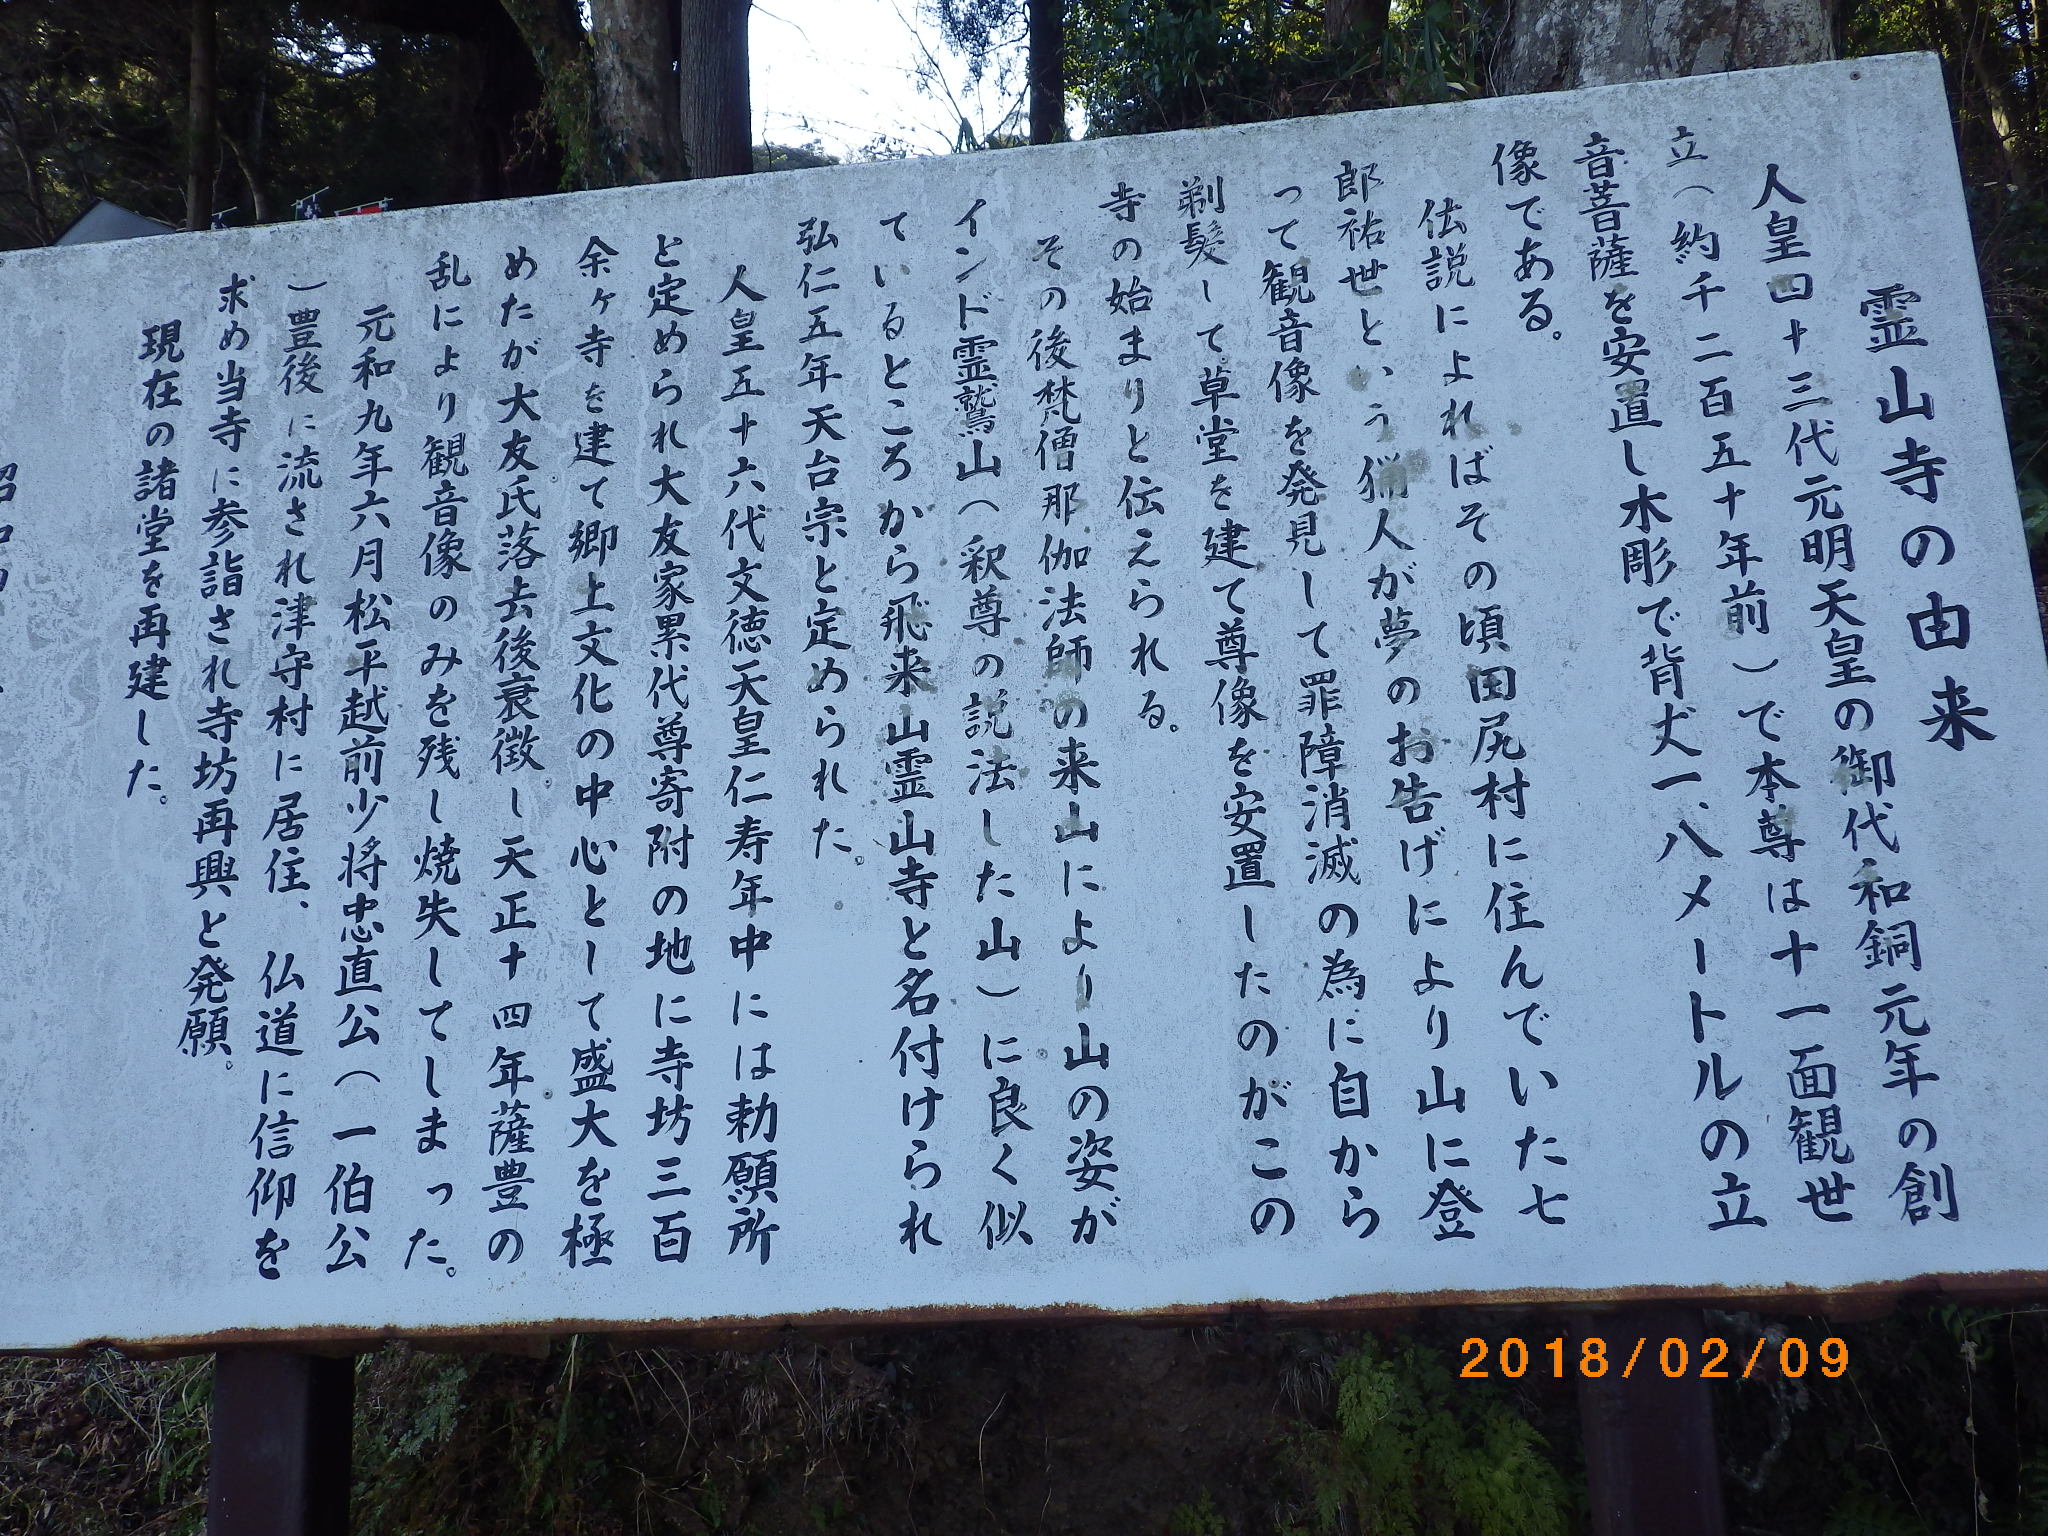 霊山寺の由来
人皇四十三代元明天皇の御代和銅元年の創
立（約千二百五十年前）で本尊は十一面観世
音菩薩を安置し木彫で背丈一、八メートルの立
像である。
伝説によればその頃田尻村に住んでいた七
郎祐世という猟人が夢のお告げにより山に登
って観音像を発見して罪障消滅の為に自から
剃髪して草堂を建て尊像を安置したのがこの
寺の始まりと伝えられる。
その後梵僧那伽法師の来山により山の姿が
インド霊鷲山（釈尊の説法した山）に良く似
ているところから飛来山霊山寺と名付けられ
弘仁五年天台宗と定められた。
人皇五十六代文徳天皇仁寿年中には勅願所
と定められ大友家累代尊寄附の地に寺坊三百
余ヶ寺を建て郷土文化の中心として盛大を極
めたが大友氏落去後衰徴し天正十四年薩豊の
乱により観音像のみを残し焼失してしまった。
元和九年六月松平越前少将忠直公（一伯公
）豊後に流され津守村に居住、仏道に信仰を
求め当寺に参詣され寺坊再興と発願。
現在の諸堂を再建した。
2018/02/09